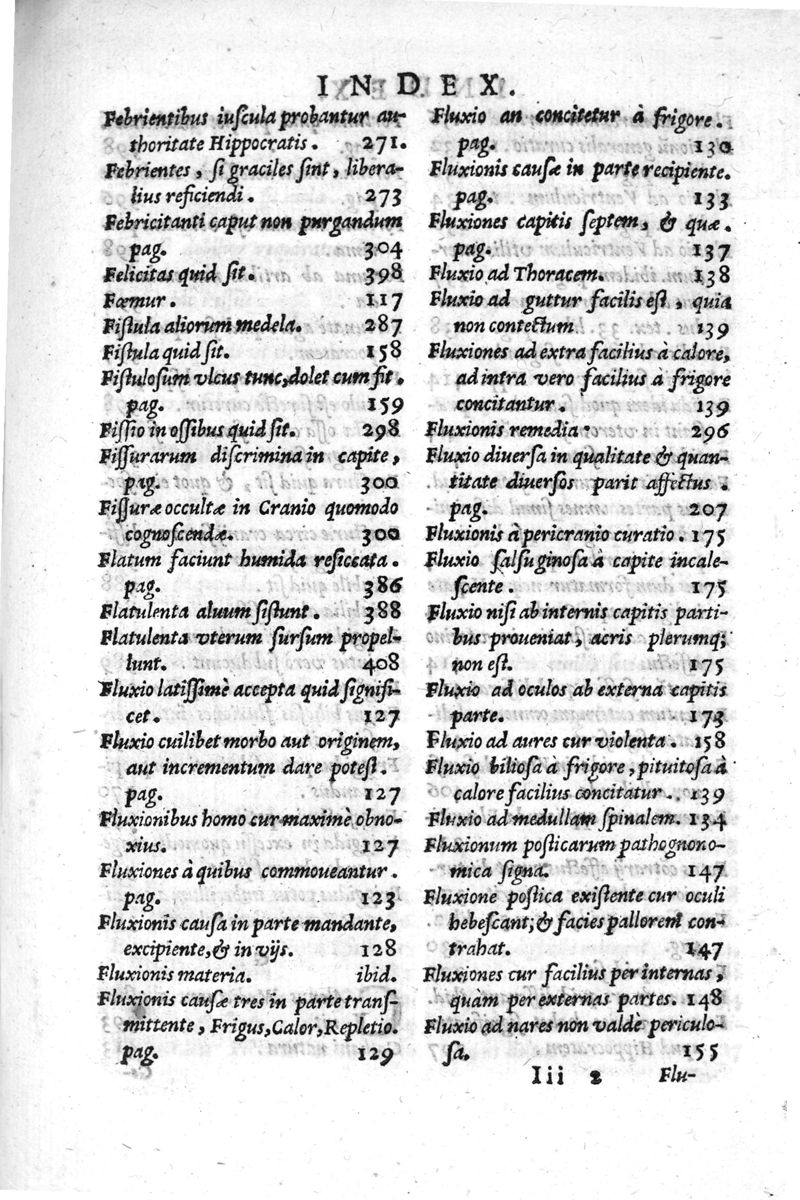 INDEX.
Febrientibus iuſcula probantur au-
thoritate Hippocratis. 271.
Febrientes, ſi graciles ſint, libera-
lius reficiendi. 273
Febricitanti caput non purgandum
pag. 304
Felicitas quid ſit. 398
Fœmur. 117
Fiſtula aliorum medela. 287
Fiſtula quid ſit. 158
Fiſtuloſum vlcus tunc, dolet cum fit.
pag. 159
Fiſſio in oſſibus quid ſit. 298
Fiſſurarum diſcrimina in capite,
pag. 300
Fiſſuræ occultæ in Cranio quomodo
cognoſcendæ. 300
Flatum faciunt humida reſiccata.
pag. 386
Flatulenta aluum ſiſtunt. 388
Flatulenta vterum ſurſum propel-
lunt. 408
Fluxio latiſſimè accepta quid ſignifi-
cet. 127
Fluxio cuilibet morbo aut originem,
aut incrementum dare poteſt.
pag. 127
Fluxionibus homo cur maximè obno-
xius. 127
Fluxiones à quibus commoueantur.
pag. 123
Fluxionis cauſa in parte mandante,
excipiente, & in vijs. 128
Fluxionis materia. ibid.
Fluxionis cauſæ tres in parte tranſ-
mittente, Frigus, Calor, Repletio.
pag. 129
Fluxio an concitetur à frigore.
pag. 130
Fluxionis cauſæ in parte recipiente.
pag. 133
Fluxiones capitis ſeptem, & quæ.
pag. 137
Fluxio ad Thoracem. 138
Fluxio ad guttur facilis eſt, quia
non contectum 139
Fluxiones ad extra facilius à calore,
ad intra vero facilius à frigore
concitantur. 139
Fluxionis remedia. 296
Fluxio diuerſa in qualitate & quan-
titate diuerſos parit affectus.
pag. 207
Fluxionis à pericranio curatio. 175
Fluxio ſalſuginoſa à capite incale-
ſcente. 175
Fluxio niſi ab internis capitis parti-
bus proueniat, acris plerumq;
non eſt. 175
Fluxio ad oculos ab externa capitis
parte. 173
Fluxio ad aures cur violenta. 158
Fluxio bilioſa à frigore, pituitoſa à
calore facilius concitatur.. 139
Fluxio ad medullam ſpinalem. 134
Fluxionum poſticarum pathognono-
mica ſigna. 147
Fluxione poſtica exiſtente cur oculi
hebeſcant; & facies pallorem con-
trahat. 147
Fluxiones cur facilius per internas,
quàm per externas partes. 148
Fluxio ad nares non valdè periculo-
ſa. 155
Iii 2 Flu-